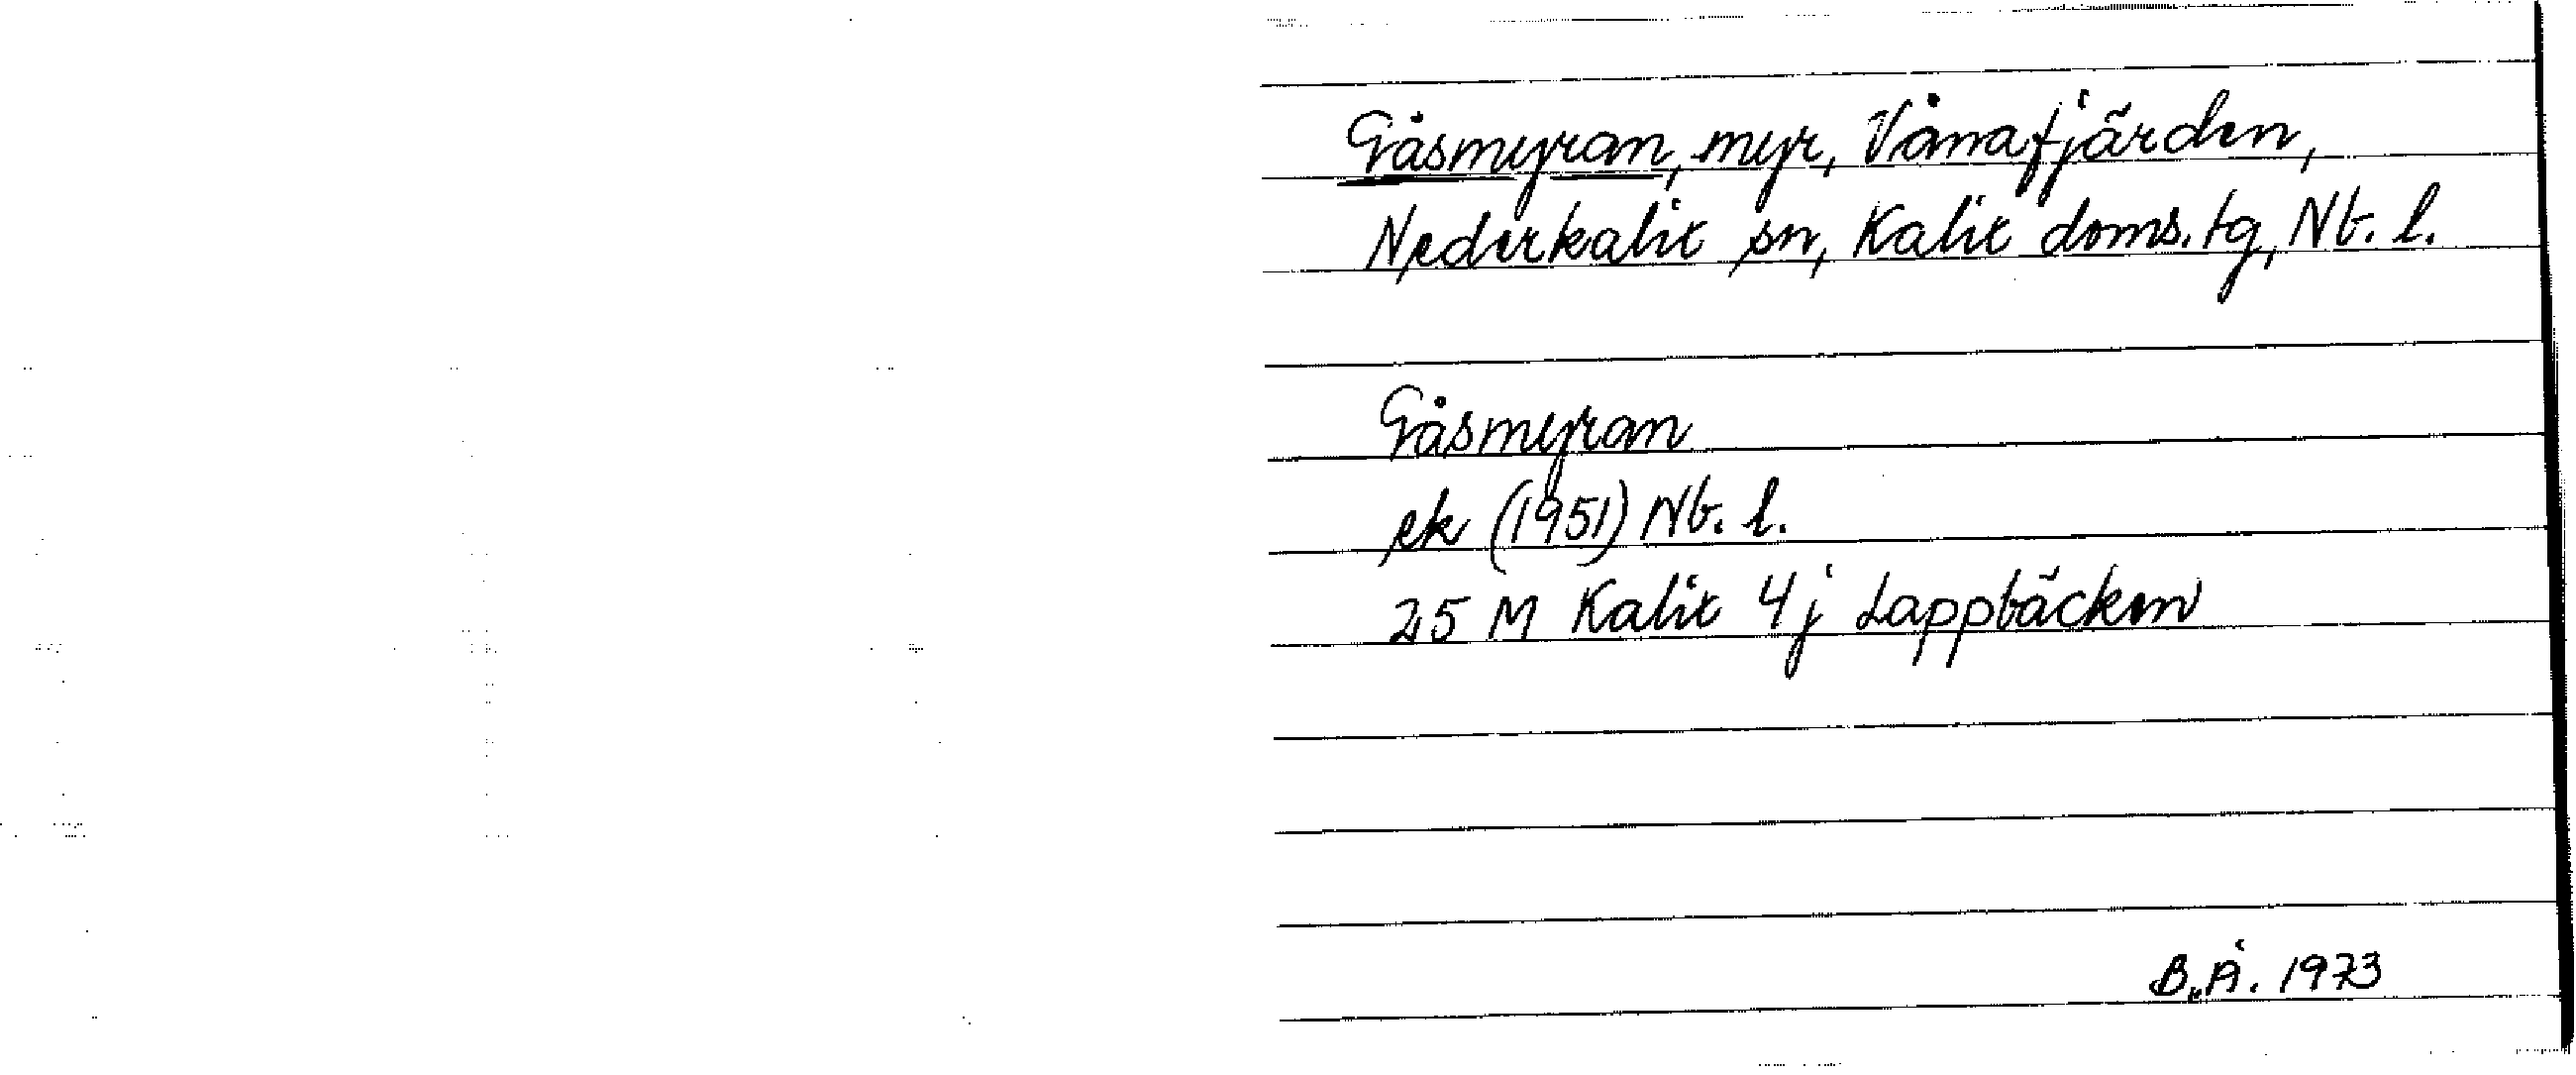 Gåsmyran, myr, Vånafjärden,
Nederkalix sn, Kalix doms.tg, Nb. l.
Gåsmyran
ek (1951) Nb. l.
25 M Kalix 4j Lappbäcken
B.Å. 1973